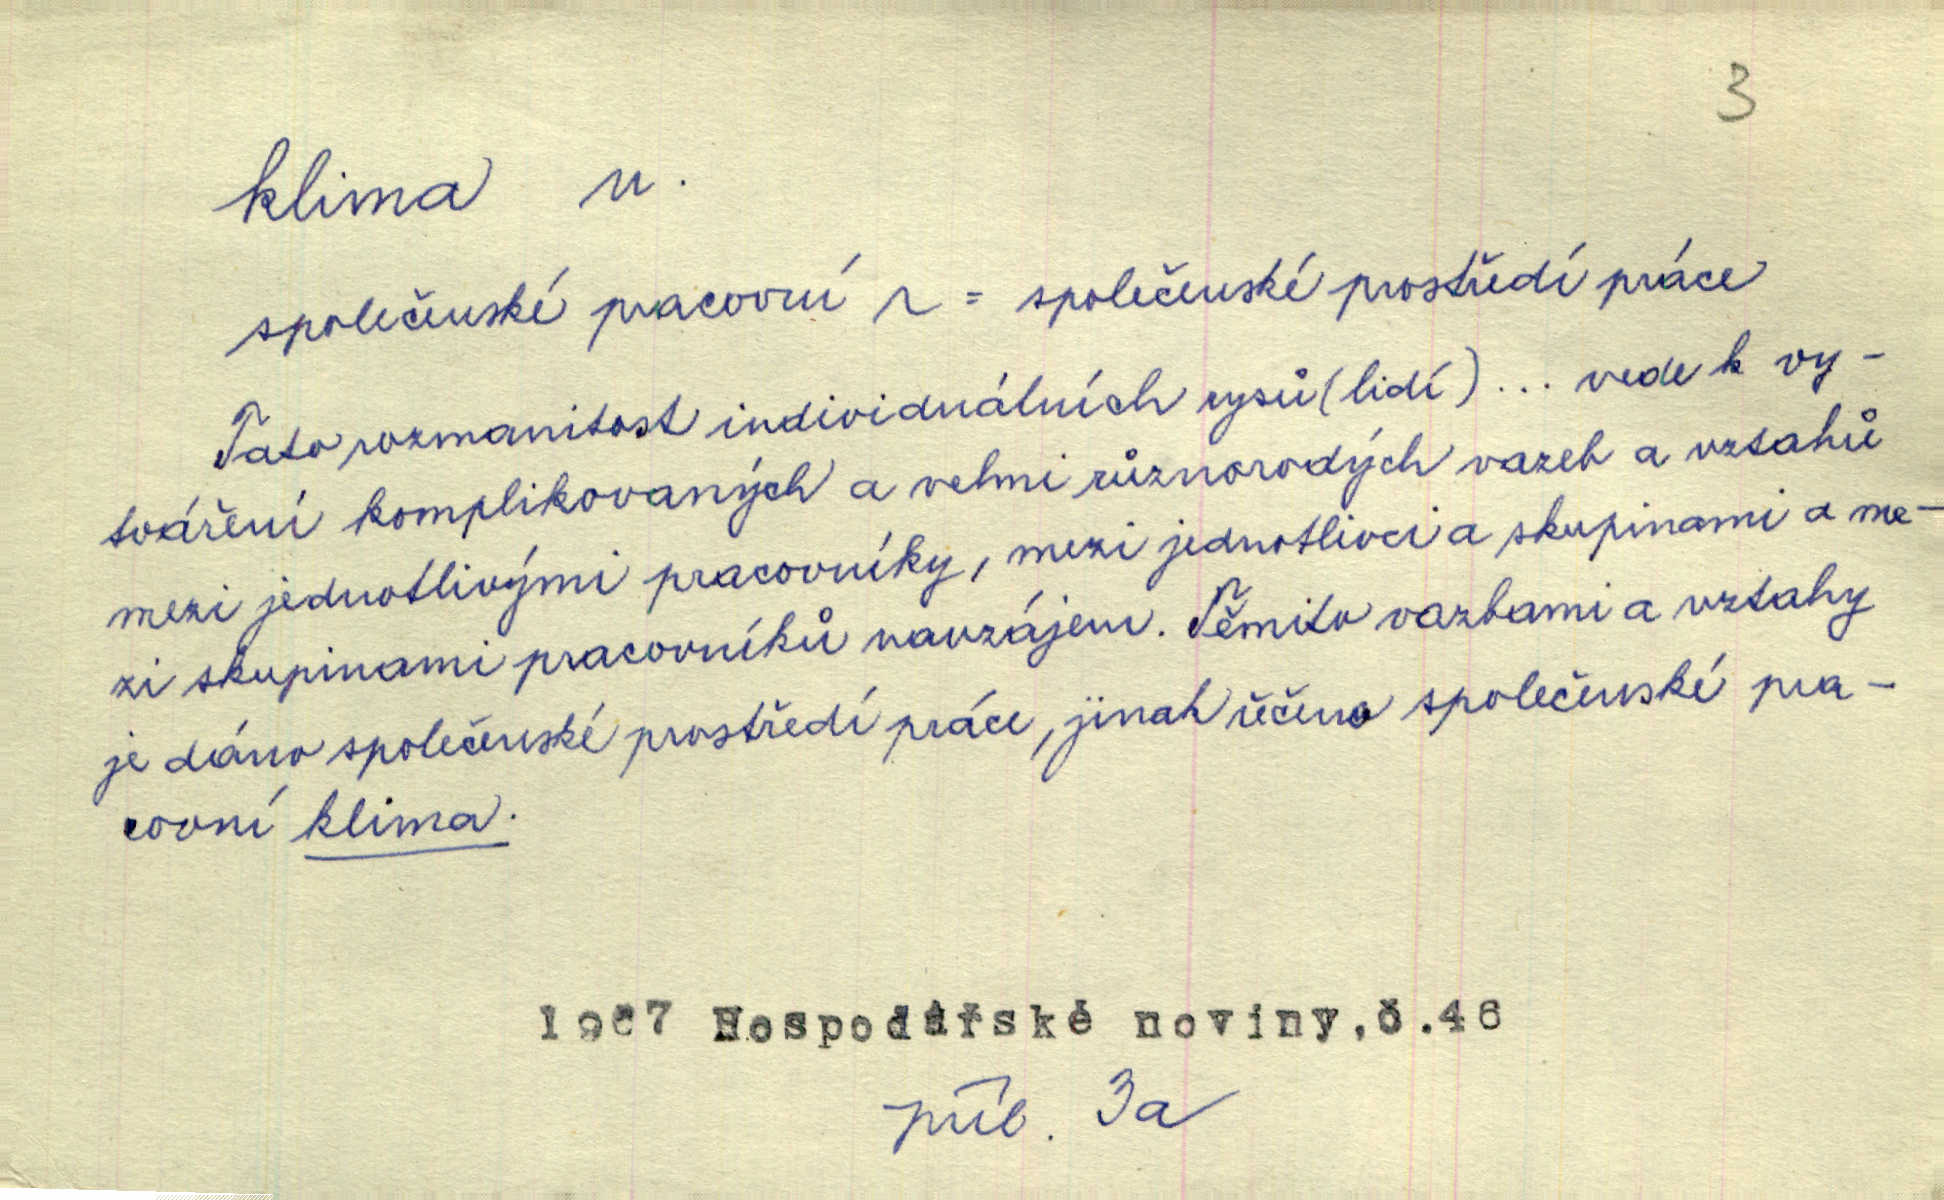 3
klima n.
společenské pracovní ~ = společenské prostředí práce
Tato rozmanitost individuálních rysů (lidí) ... vede k vy-
tváření komplikovaných a velmi různorodých vazeb a vztahů
mezi jednotlivými pracovníky, mezi jednotlivci a skupinami a me-
zi skupinami pracovníků navzájem. Těmito vazbami a vztahy
je dáno společenské prostředí práce, jinak řečeno společenské pra-
covní klima.
1967 Hospodářské noviny,č.46
příl. 3a